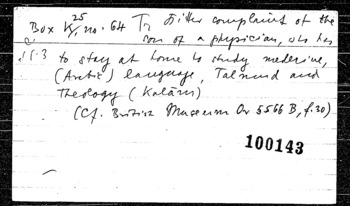 25
Box K, no. 64 Tr Bitter complaint of the
son of a physician, who has
to stay at home to study medicine,
(Arabic) language, Talmud and
Theology (Kalām)
(Cf. British Museum Or 5566 B, f. 30)
100143